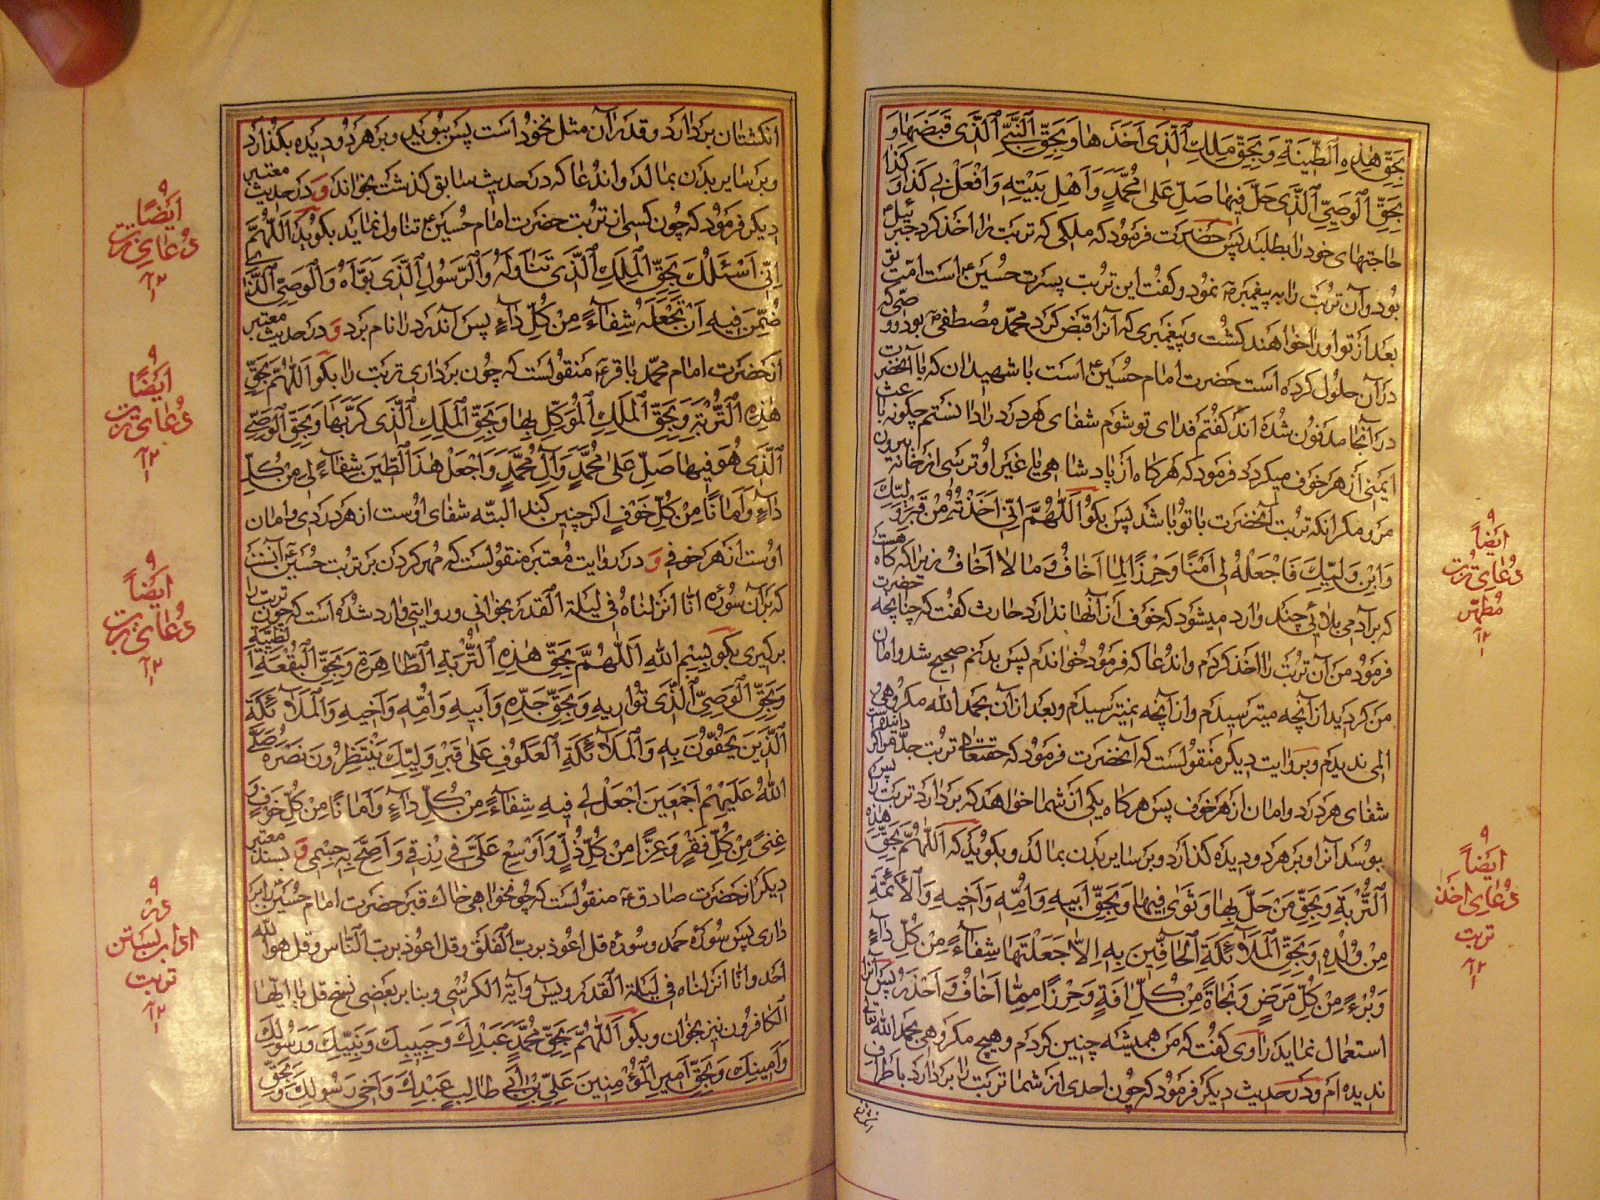 بِحَقِّ هٰذِهِ الطِّينَةِ وَبِحَقِّ مَلَكِ الَّذِی اَخَذَهَا وَبِحَقِّ النَّبِیِّ الَّذِی قَبَضَهَا وَ
بِحَقِّ الْوَصِیِّ الَّذِی حَلَّ فِیهَا صَلِّ عَلیٰ مُحَمَّدٍ وَاَهْلِ بَیْتِهِ وَافْعَلْ بِی کَذَا وَکَذَا
حاجتهای خود را بطلبد پس حضرت فرمود که ملکی که تربت را اخذ کرد جبرئیل
بود و آن تربت را به پیغمبر نمود و گفت این تربت پسرت حسین است امت تو
بعد از تو او را خواهند کشت و پیغمبری که آنرا قبض کرد محمد مصطفی بود و وصی که
در آن حلول کرده است حضرت امام حسین است با شهیدان که با آنحضرت
در آنجا مدفون شده اند گفتم فدای تو شوم شفای هر درد را دانستم چگونه باعث
ایمنی از هر خوف میگردد فرمود که هرگاه از پادشاهی یا غیر او ترسی از خانه بیرون
مرو مگر آنکه تربت آنحضرت با تو باشد پس بگو اَللّٰهُمَّ اِنِّی اَخَذْتُهُ مِنْ قَبْرِ وَلِیِّکَ
وَابْنِ وَلِیِّکَ فَاجْعَلْهُ لِی اَمْنًا وَحِرْزًا لِمَا اَخَافُ وَمَا لَا اَخَافُ زیرا که گاه هست
که بر آدمی بلائی چند وارد میشود که خوف از آنها ندارد حارث گفت که چنانچه حضرت
فرمود من آن تربت را اخذ کردم و اندعا که فرمود خواندم پس بدنم صحیح شد و امان
من گردید از آنچه میترسیدم و از آنچه نمیترسیدم و بعد از آن بحمد الله مکروهی و
المی ندیدم و بروایت دیگر منقولست که آنحضرت فرمود که حقتعالی تربت جدم را
شفای هر درد و امان از هر خوف پس هرگاه یکی از شما خواهد که بردارد تربت را پس
ببوسد آنرا و بر هر دو دیده گذارد و بر سایر بدن بمالد و بگوید که اَللّٰهُمَّ بِحَقِّ هٰذِهِ
التُّرْبَةِ وَبِحَقِّ مَنْ حَلَّ بِهَا وَثَوٰی فِیهَا وَبِحَقِّ اَبِیهِ وَاُمِّهِ وَاَخِیهِ وَالْاَئِمَّةِ
مِنْ وُلْدِهِ وَبِحَقِّ الْمَلٰٓائِکَةِ الْحَافِّینَ بِهِ اِلَّا جَعَلْتَهَا شِفَآءً مِنْ کُلِّ دَآءٍ
وَبُرْءً مِنْ کُلِّ مَرَضٍ وَنَجَاةً مِنْ کُلِّ اٰفَةٍ وَحِرْزًا مِمَّا اَخَافُ وَاَحْذَرُ پس آنرا
استعمال نماید راوی گفت که من همیشه چنین کردم و هیچ مکروهی بحمد الله تعالی
ندیده ام و در حدیث دیگر فرمود که چون احدی از شما تربت را بردارد باطراف
ایضاً
دعای تربت
مطهر
ایضاً
دعای اخذ
تربت
انگشتان بردارد و قدر آن مثل نخود است پس ببوید و بر هر دو دیده بگذارد
و بر سایر بدن بمالد و اندعا که در حدیث سابق گذشت بخواند و در حدیث معتبر
دیگر فرمود که چون کسی از تربت حضرت امام حسین تناول نماید بگوید اَللّٰهُمَّ
اِنِّی اَسْئَلُکَ بِحَقِّ الْمَلَکِ الَّذِی تَنَاوَلَهُ وَالرَّسُولِ الَّذِی بَوَّاَهُ وَالْوَصِیِّ الَّذِی
ضُمِّنَ فِیهِ اَنْ تَجْعَلَهُ شِفَآءً مِنْ کُلِّ دَآءٍ پس آندرد را نام برد و در حدیث معتبر
از حضرت امام محمد باقر منقولست که چون برداری تربت را بگو اَللّٰهُمَّ بِحَقِّ
هٰذِهِ التُّرْبَةِ وَبِحَقِّ الْمَلَکِ الْمُوَکَّلِ بِهَا وَبِحَقِّ الْمَلَکِ الَّذِی کَرَبَهَا وَبِحَقِّ الْوَصِیِّ
الَّذِی هُوَ فِیهَا صَلِّ عَلیٰ مُحَمَّدٍ وَاٰلِ مُحَمَّدٍ وَاجْعَلْ هٰذَا الطِّینَ شِفَآءً لِی مِنْ کُلِّ
دَآءٍ وَاَمَانًا مِنْ کُلِّ خَوْفٍ اگر چنین کند البته شفای اوست از هر دردی و امان
اوست از هر خوفی و در روایت معتبر منقولست که مهر کردن بر تربت حسین آنست
که بر آن سوره انا انزلناه فی لیلة القدر بخوانی و روایتی وارد شده است که چون تربت را
برگیری بگو بِسْمِ اللهِ اَللّٰهُمَّ بِحَقِّ هٰذِهِ التُّرْبَةِ الطَّاهِرَةِ وَبِحَقِّ الْبُقْعَةِ الطَّیِّبَةِ
وَبِحَقِّ الْوَصِیِّ الَّذِی تُوَارِیهِ وَبِحَقِّ جَدِّهِ وَاَبِیهِ وَاُمِّهِ وَاَخِیهِ وَالْمَلٰٓائِکَةِ
الَّذِینَ یَحُفُّونَ بِهِ وَالْمَلٰٓائِکَةِ الْعُکُوفِ عَلیٰ قَبْرِ وَلِیِّکَ یَنْتَظِرُونَ نَصْرَهُ صَلَّی
اللهُ عَلَیْهِمْ اَجْمَعِینَ اجْعَلْ لِی فِیهِ شِفَآءً مِنْ کُلِّ دَآءٍ وَاَمَانًا مِنْ کُلِّ خَوْفٍ وَ
غِنًی مِنْ کُلِّ فَقْرٍ وَعِزًّا مِنْ کُلِّ ذُلٍّ وَاَوْسِعْ عَلَیَّ فِی رِزْقِی وَاَصِحَّ بِهِ جِسْمِی و بسند معتبر
دیگر از حضرت صادق منقولست که چو نخواهی خاک قبر حضرت امام حسین را بر
داری پس سوره حمد و سوره قل اعوذ برب الفلق و قل اعوذ برب الناس و قل هو الله
احد و انا انزلناه فی لیلة القدر و یس و آیة الکرسی و بنابر بعضی نسخ قل یا ایها
الکافرون نیز بخوان و بگو اَللّٰهُمَّ بِحَقِّ مُحَمَّدٍ عَبْدِکَ وَحَبِیبِکَ وَنَبِیِّکَ وَرَسُولِکَ
وَاَمِینِکَ وَبِحَقِّ اَمِیرِ الْمُؤْمِنِینَ عَلِیِّ بْنِ اَبِی طَالِبٍ عَبْدِکَ وَاَخِی رَسُولِکَ وَبِحَقِّ
ایضاً
دعای تربت
ایضاً
دعای تربت
ایضاً
دعای تربت
تربت